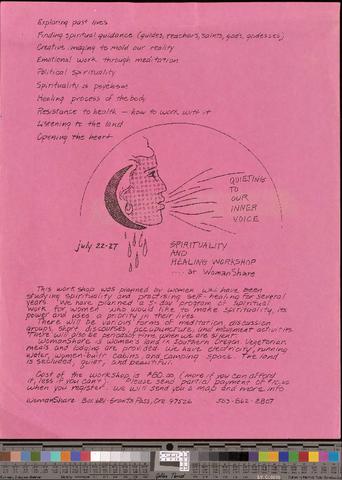 Exploring past lives
Finding spiritual guidance (guides, teachers, saints, gods, godesses)
Creative imaging to mold our reality
Emotional work through meditation
Political spirituality
Spirituality vs psychism
Healing process of the body
Resistance to health – how to work with it
Listening to the land
Opening the heart
QUIETING
TO
OUR
INNER
VOICE
July 22-27
SPIRITUALITY
AND
HEALING WORKSHOP
.... at WomanShare
This workshop was planned by women who have been
studying spirituality and practising self-healing for several
years. We have planned a 5-day program of spiritual
work for women who would like to make spirituality, its
power and uses a priority in their lives.
There will be various forms of meditation, discussion
groups, short discourses, accupuncture, and movement activities.
There will also be periods of time when we are silent.
WomanShare is women's land in Southern Oregon. Vegetarian
meals and lodging are provided. We have electricity, running
water, women-built cabins, and camping space. The land
is secluded, quiet, and beautiful.
Cost of the workshop is $80.00 (more if you can afford
it, less if you can't). Please send partial payment of
when you register. We will send you a map and more info.
WomanShare Box 681 Grants Pass, Ore 97526 503-862-2807